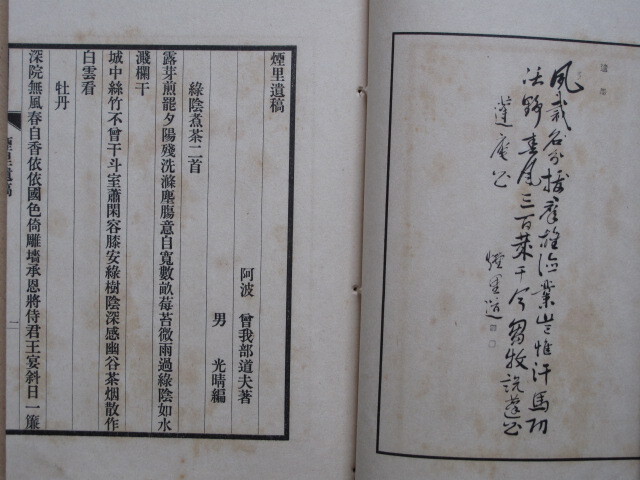 業豈惟汗馬功
野春風三百葉于今芻牧說蓬公
蓬庵公
煙里
煙里遺稿
阿波 曾我部道夫著
男 光晴編
綠陰煮茶二首
露芽煎罷夕陽殘洗滌塵膓意自寬數畝莓苔微雨過綠陰如水
濺欄干
城中絲竹不曾干斗室蕭閑容膝安綠樹陰深感幽谷茶烟散作
白雲看
牡丹
深院無風春自香依依國色倚雕墻承恩將侍君王宴斜日一簾
煙里遺稿